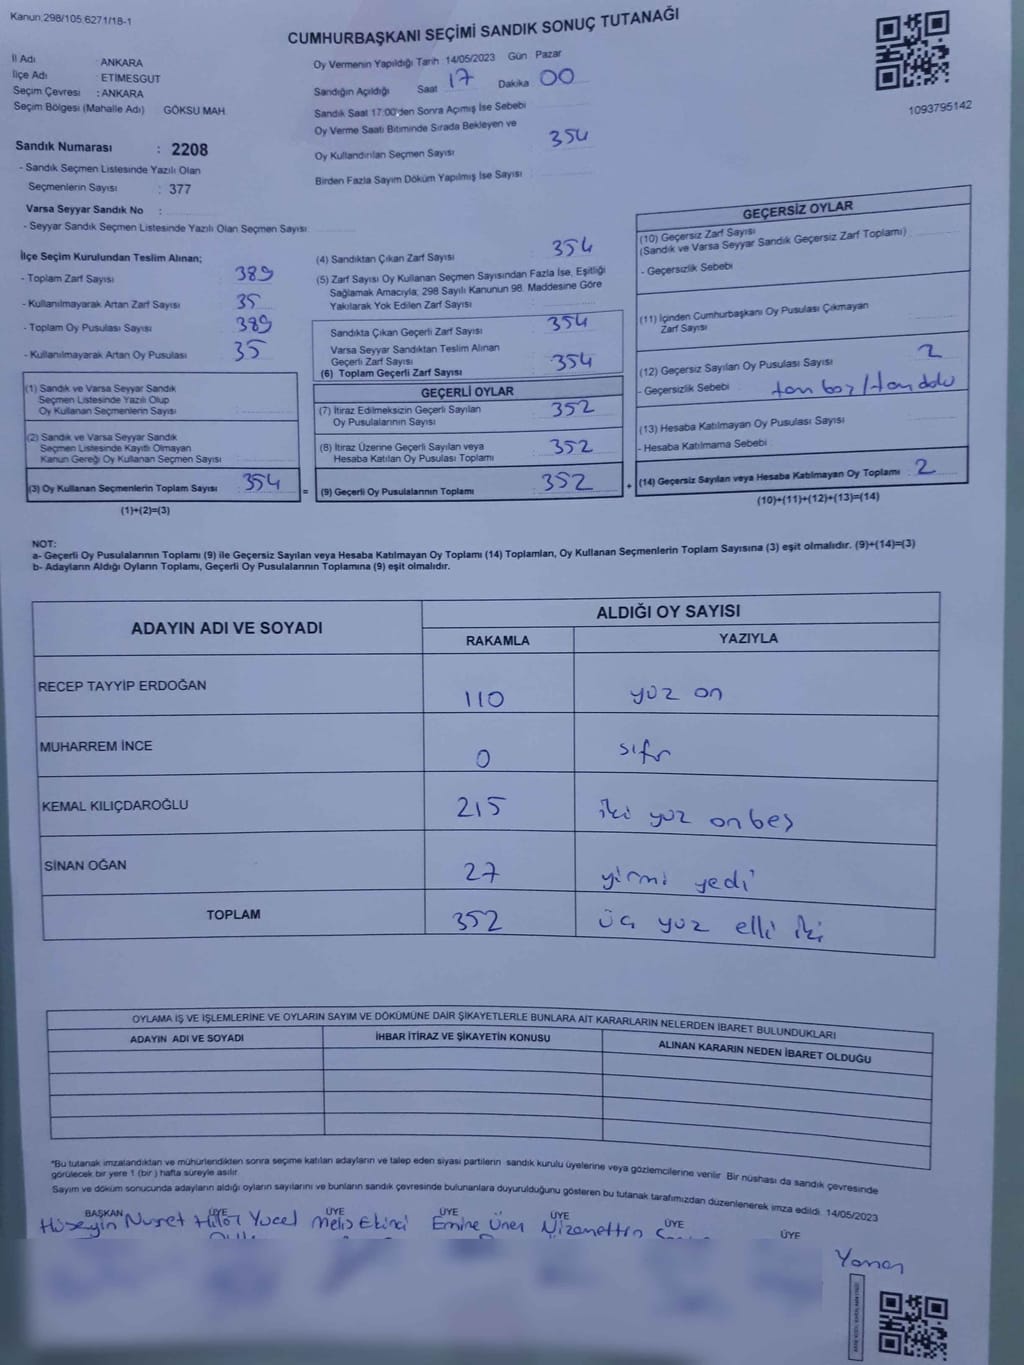 Kanun:298/105.6271/18-1
CUMHURBAŞKANI SEÇİMİ SANDIK SONUÇ TUTANAĞI
İl Adı : ANKARA
İlçe Adı : ETİMESGUT
Seçim Çevresi : ANKARA
Seçim Bölgesi (Mahalle Adı) GÖKSU MAH
Sandık Numarası : 2208
- Sandık Seçmen Listesinde Yazılı Olan
Seçmenlerin Sayısı : 377
Varsa Seyyar Sandık No :
- Seyyar Sandık Seçmen Listesinde Yazılı Olan Seçmen Sayısı
Oy Vermenin Yapıldığı Tarih 14/05/2023 Gün Pazar
Sandığın Açıldığı Saat 17 Dakika 00
Sandık Saat 17:00'den Sonra Açımış İse Sebebi
Oy Verme Saati Bitiminde Sırada Bekleyen ve
Oy Kullandırılan Seçmen Sayısı 354
Birden Fazla Sayım Döküm Yapılmış İse Sayısı
1093795142
İlçe Seçim Kurulundan Teslim Alınan;
- Toplam Zarf Sayısı 389
- Kullanılmayarak Artan Zarf Sayısı 35
- Toplam Oy Pusulası Sayısı 389
- Kullanılmayarak Artan Oy Pusulası 35
(1) Sandık ve Varsa Seyyar Sandık
Seçmen Listesinde Yazılı Olup
Oy Kullanan Seçmenlerin Sayısı
(2) Sandık ve Varsa Seyyar Sandık
Seçmen Listesinde Kayıtlı Olmayan
Kanun Gereği Oy Kullanan Seçmen Sayısı
(3) Oy Kullanan Seçmenlerin Toplam Sayısı 354 =
(1)+(2)=(3)
(4) Sandıktan Çıkan Zarf Sayısı 354
(5) Zarf Sayısı Oy Kullanan Seçmen Sayısından Fazla İse, Eşitliği
Sağlamak Amacıyla; 298 Sayılı Kanunun 98. Maddesine Göre
Yakılarak Yok Edilen Zarf Sayısı
Sandıkta Çıkan Geçerli Zarf Sayısı 354
Varsa Seyyar Sandıktan Teslim Alınan
Geçerli Zarf Sayısı
(6) Toplam Geçerli Zarf Sayısı 354
GEÇERLİ OYLAR
(7) İtiraz Edilmeksizin Geçerli Sayılan
Oy Pusulalarının Sayısı 352
(8) İtiraz Üzerine Geçerli Sayılan veya
Hesaba Katılan Oy Pusulası Toplamı 352
(9) Geçerli Oy Pusulalarının Toplamı 352 +
GEÇERSİZ OYLAR
(10) Geçersiz Zarf Sayısı
(Sandık ve Varsa Seyyar Sandık Geçersiz Zarf Toplamı)
- Geçersizlik Sebebi
(11) İçinden Cumhurbaşkanı Oy Pusulası Çıkmayan
Zarf Sayısı
(12) Geçersiz Sayılan Oy Pusulası Sayısı 2
- Geçersizlik Sebebi tan boz/tan dolu
(13) Hesaba Katılmayan Oy Pusulası Sayısı
- Hesaba Katılmama Sebebi
(14) Geçersiz Sayılan veya Hesaba Katılmayan Oy Toplamı 2
(10)+(11)+(12)+(13)=(14)
NOT:
a- Geçerli Oy Pusulalarının Toplamı (9) ile Geçersiz Sayılan veya Hesaba Katılmayan Oy Toplamı (14) Toplamları, Oy Kullanan Seçmenlerin Toplam Sayısına (3) eşit olmalıdır. (9)+(14)=(3)
b- Adayların Aldığı Oyların Toplamı, Geçerli Oy Pusulalarının Toplamına (9) eşit olmalıdır.
ADAYIN ADI VE SOYADI ALDIĞI OY SAYISI
RAKAMLA YAZIYLA
RECEP TAYYİP ERDOĞAN 110 yüz on
MUHARREM İNCE 0 sıfır
KEMAL KILIÇDAROĞLU 215 iki yüz onbeş
SİNAN OĞAN 27 yirmi yedi
TOPLAM 352 üç yüz elli iki
OYLAMA İŞ VE İŞLEMLERİNE VE OYLARIN SAYIM VE DÖKÜMÜNE DAİR ŞİKAYETLERLE BUNLARA AİT KARARLARIN NELERDEN İBARET BULUNDUKLARI
ADAYIN ADI VE SOYADI İHBAR İTİRAZ VE ŞİKAYETİN KONUSU ALINAN KARARIN NEDEN İBARET OLDUĞU
*Bu tutanak imzalandıktan ve mühürlendikten sonra seçime katılan adayların ve talep eden siyasi partilerin sandık kurulu üyelerine veya gözlemcilerine verilir. Bir nüshası da sandık çevresinde
görülecek bir yere 1 (bir ) hafta süreyle asılır.
Sayım ve döküm sonucunda adayların aldığı oyların sayılarını ve bunların sandık çevresinde bulunanlara duyurulduğunu gösteren bu tutanak tarafımızdan düzenlenerek imza edildi. 14/05/2023
BAŞKAN ÜYE ÜYE ÜYE ÜYE ÜYE ÜYE
Hüseyin Nusret Hilal Yücel Melis Ekinci Emine Üner Nizamettin
Yaman